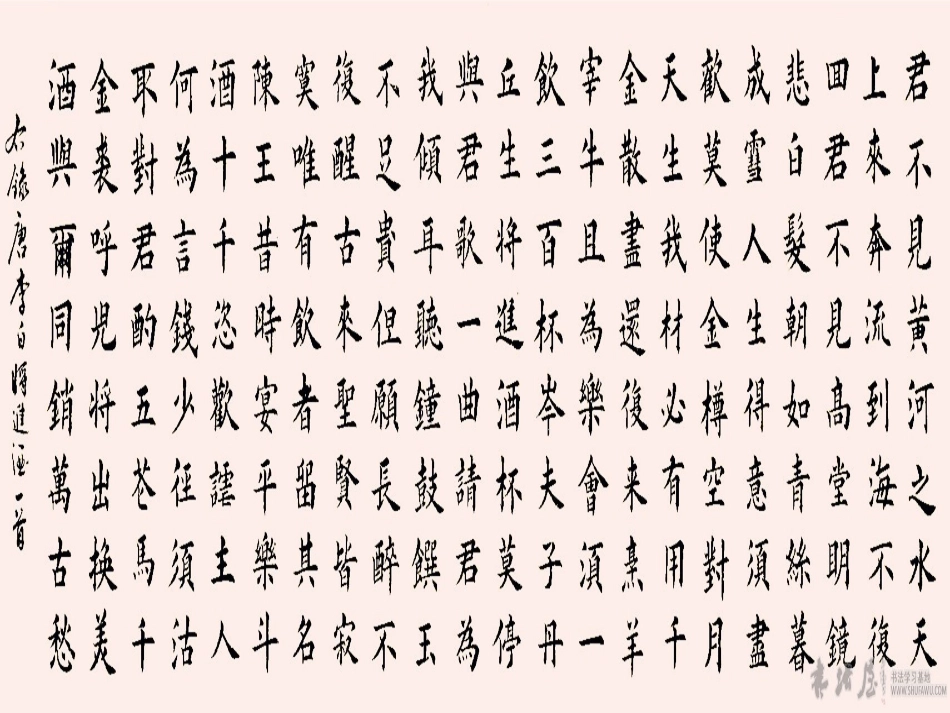 君不見黃河之水天
上來奔流到海不復
囬君不見高堂明鏡
悲白髮朝如青絲暮
成雪人生得意須盡
歡莫使金樽空對月
天生我材必有用千
金散盡還復来烹羊
宰牛且為樂會須一
飲三百杯岑夫子丹
丘生將進酒杯莫停
與君歌一曲請君為
我傾耳聽鐘鼓饌玉
不足貴但願長醉不
復醒古來聖賢皆寂
寞唯有飲者留其名
陳王昔時宴平樂斗
酒十千恣歡謔主人
何為言錢少徑須沽
取對君酌五花馬千
金裘呼兒將出換美
酒與爾同銷萬古愁
右錄唐李白將進酒一首
书法屋
书法学习基地
WWW.SHUFAWU.COM